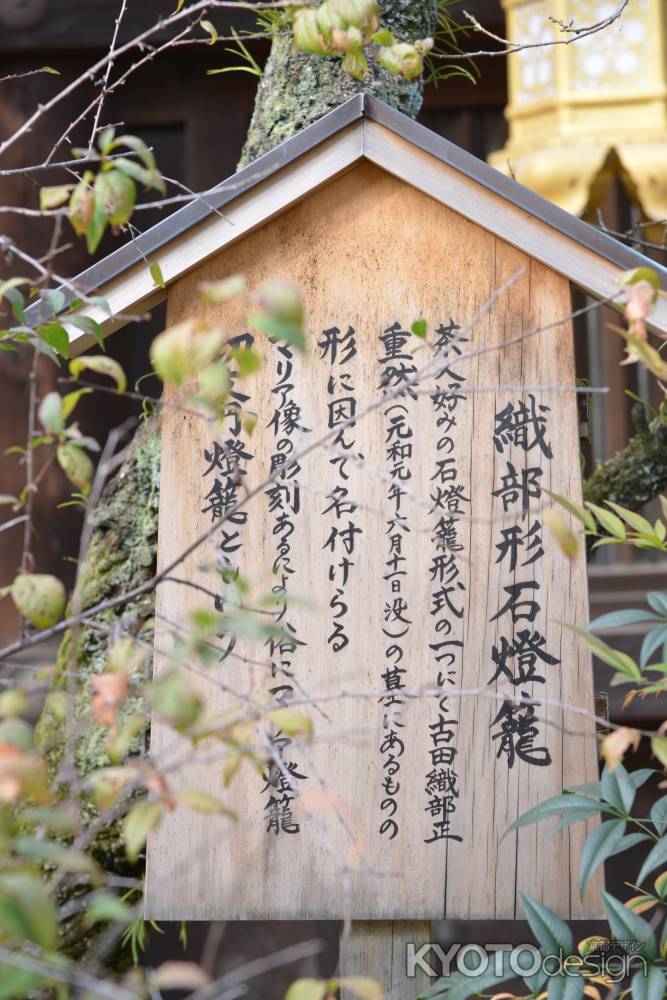 織部形石燈籠
茶人好みの石燈籠形式の一つにて古田織部正
重然(元和元年六月十一日没)の墓にあるものの
形に因んで名付けらる
マリア像の彫刻あるにより俗にマリア燈籠
燈籠ともいう
KYOTOdesign
京都デザイン